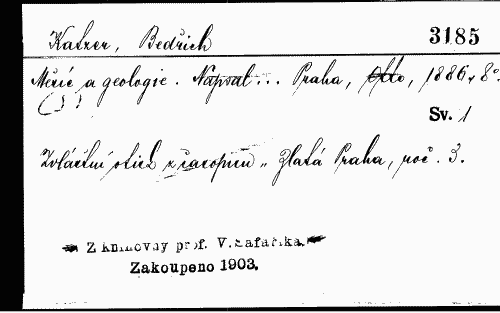 Katzer, Bedřich 3185
Měsíc a geologie. Napsal... Praha, Otto, 1886, 8°.
Sv. 1
Zvláštní otisk z časopisu „Zlatá Praha, roč. 3.
Z knihovny prof. V. Šafaříka.
Zakoupeno 1903.